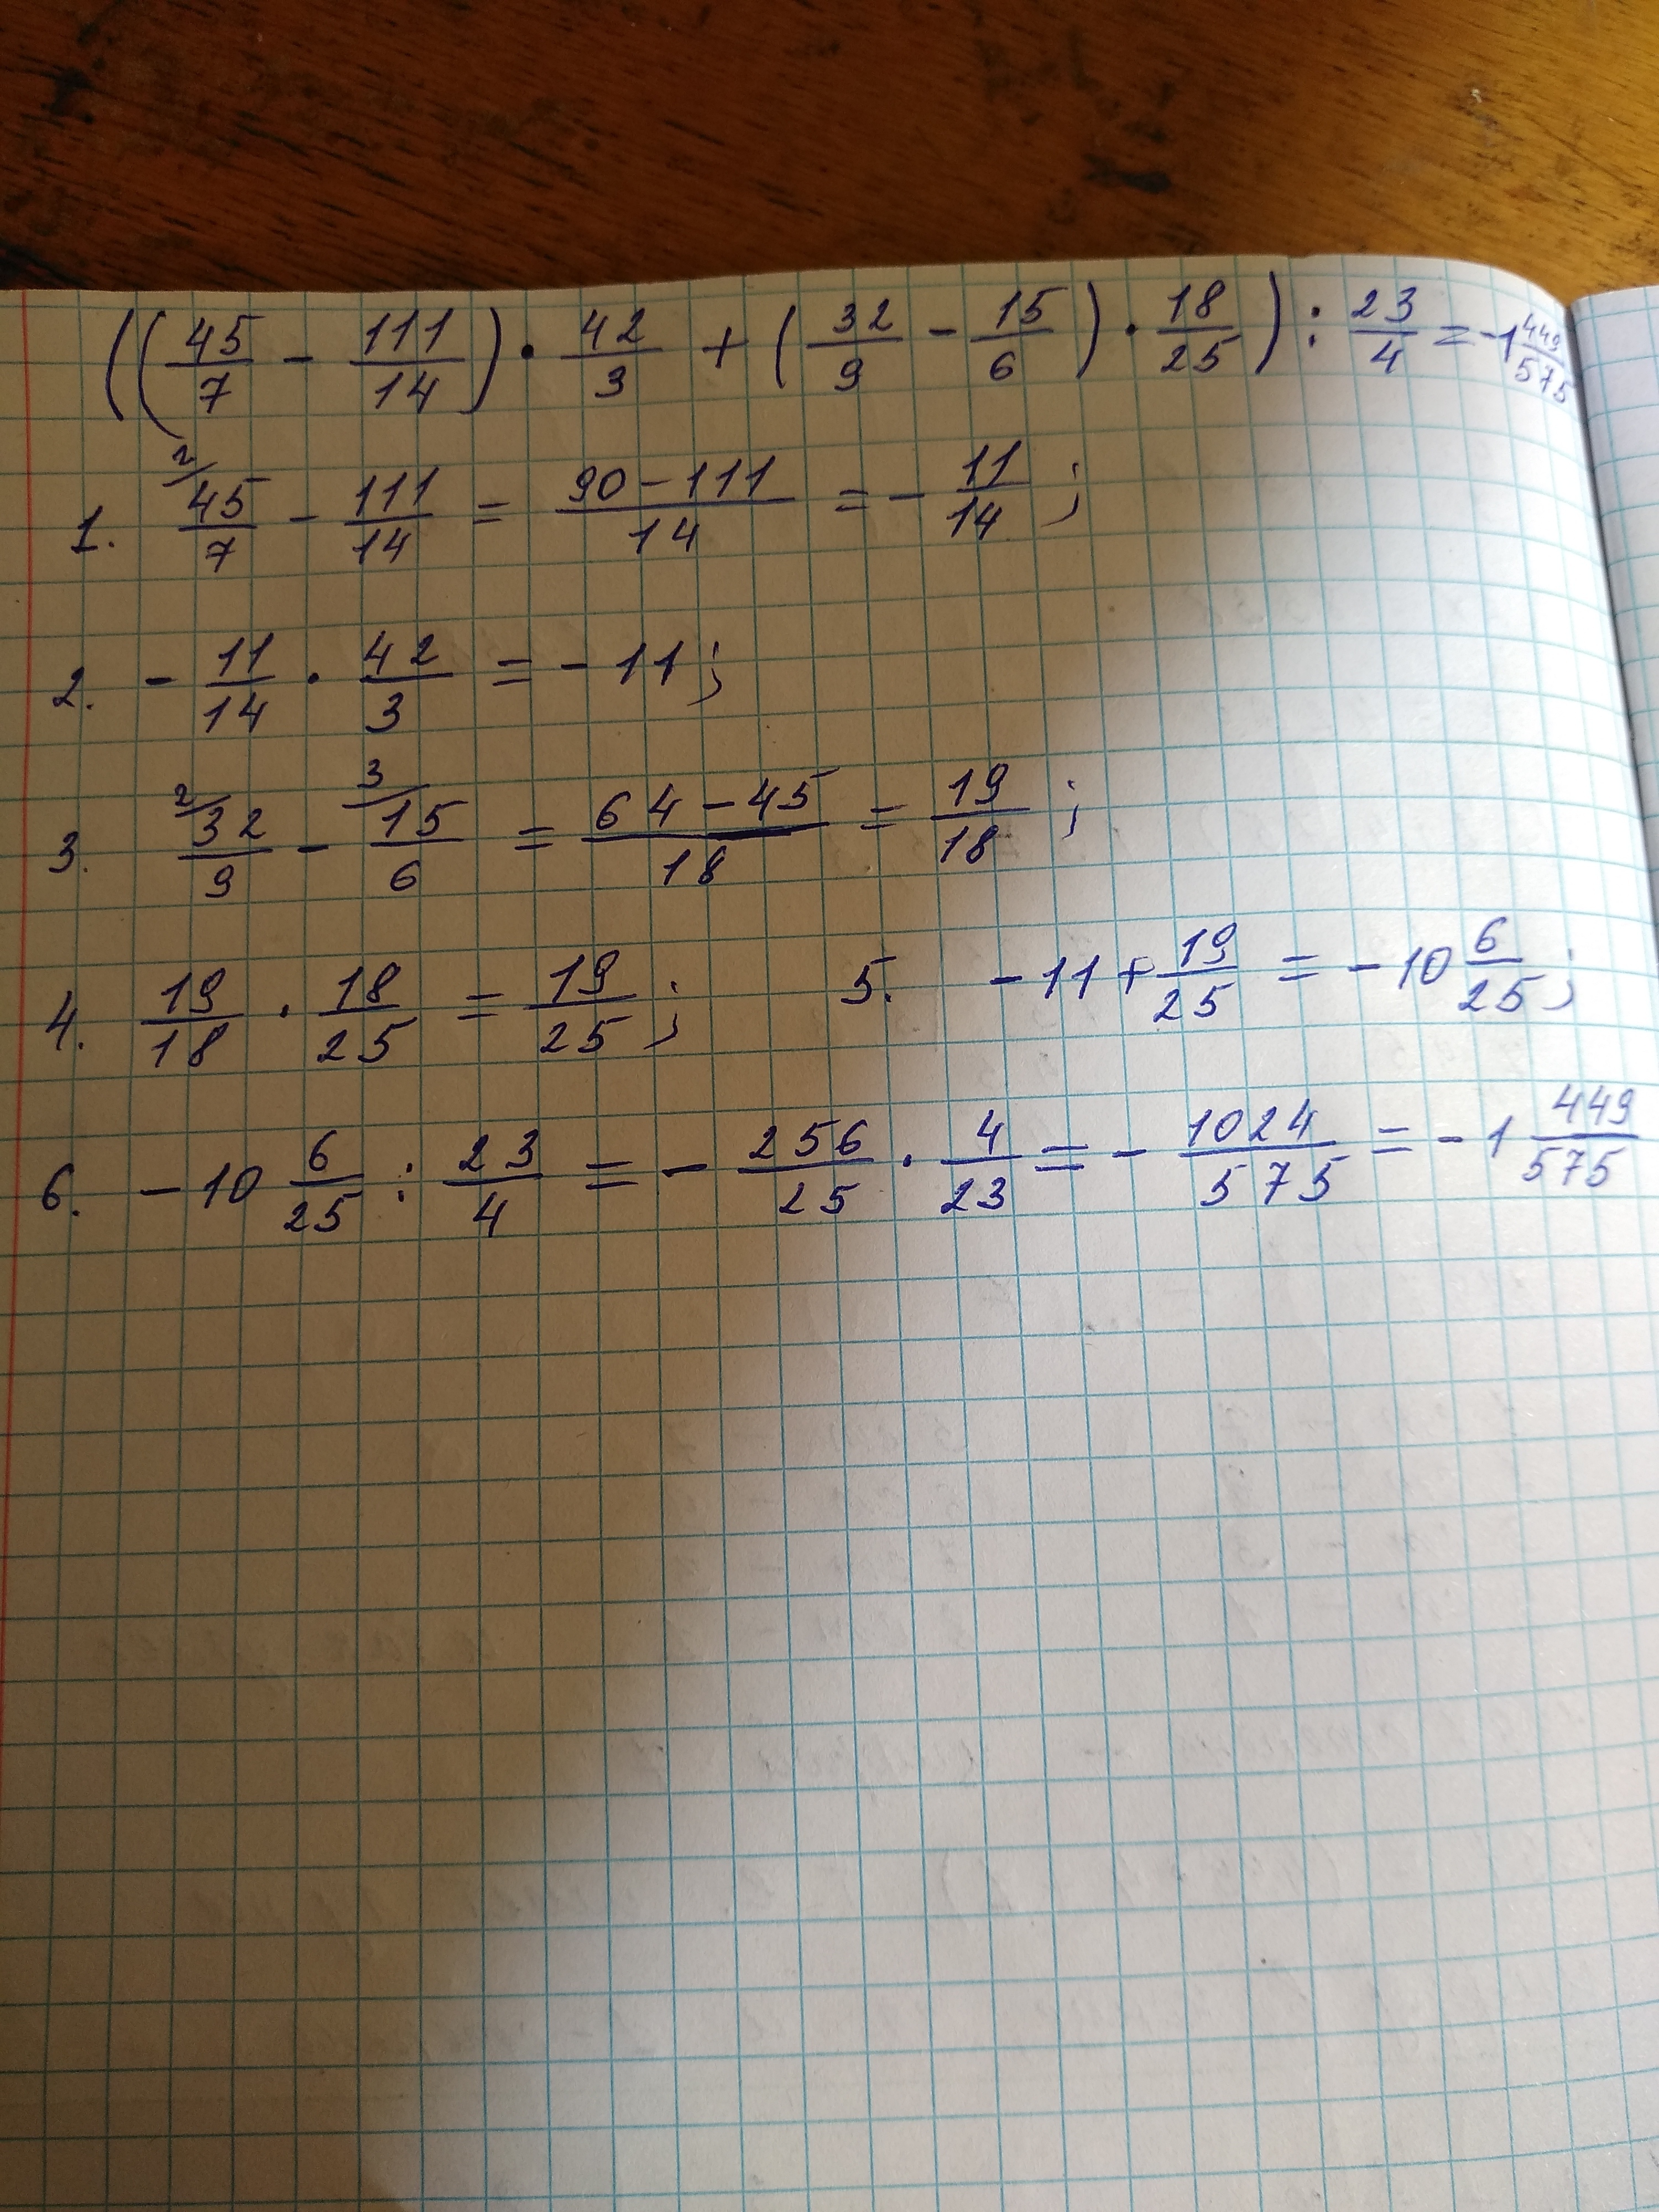 ((45/7 - 111/14) · 42/3 + (32/9 - 15/6) · 18/25) : 23/4 = -1 449/575
1. 2/ 45/7 - 111/14 = 90-111/14 = - 11/14 ;
2. - 11/14 · 42/3 = -11 ;
3. 2/ 32/9 - 3/ 15/6 = 64-45/18 = 19/18 ;
4. 19/18 · 18/25 = 19/25 ; 5. -11 + 19/25 = -10 6/25 ;
6. -10 6/25 : 23/4 = - 256/25 · 4/23 = - 1024/575 = -1 449/575